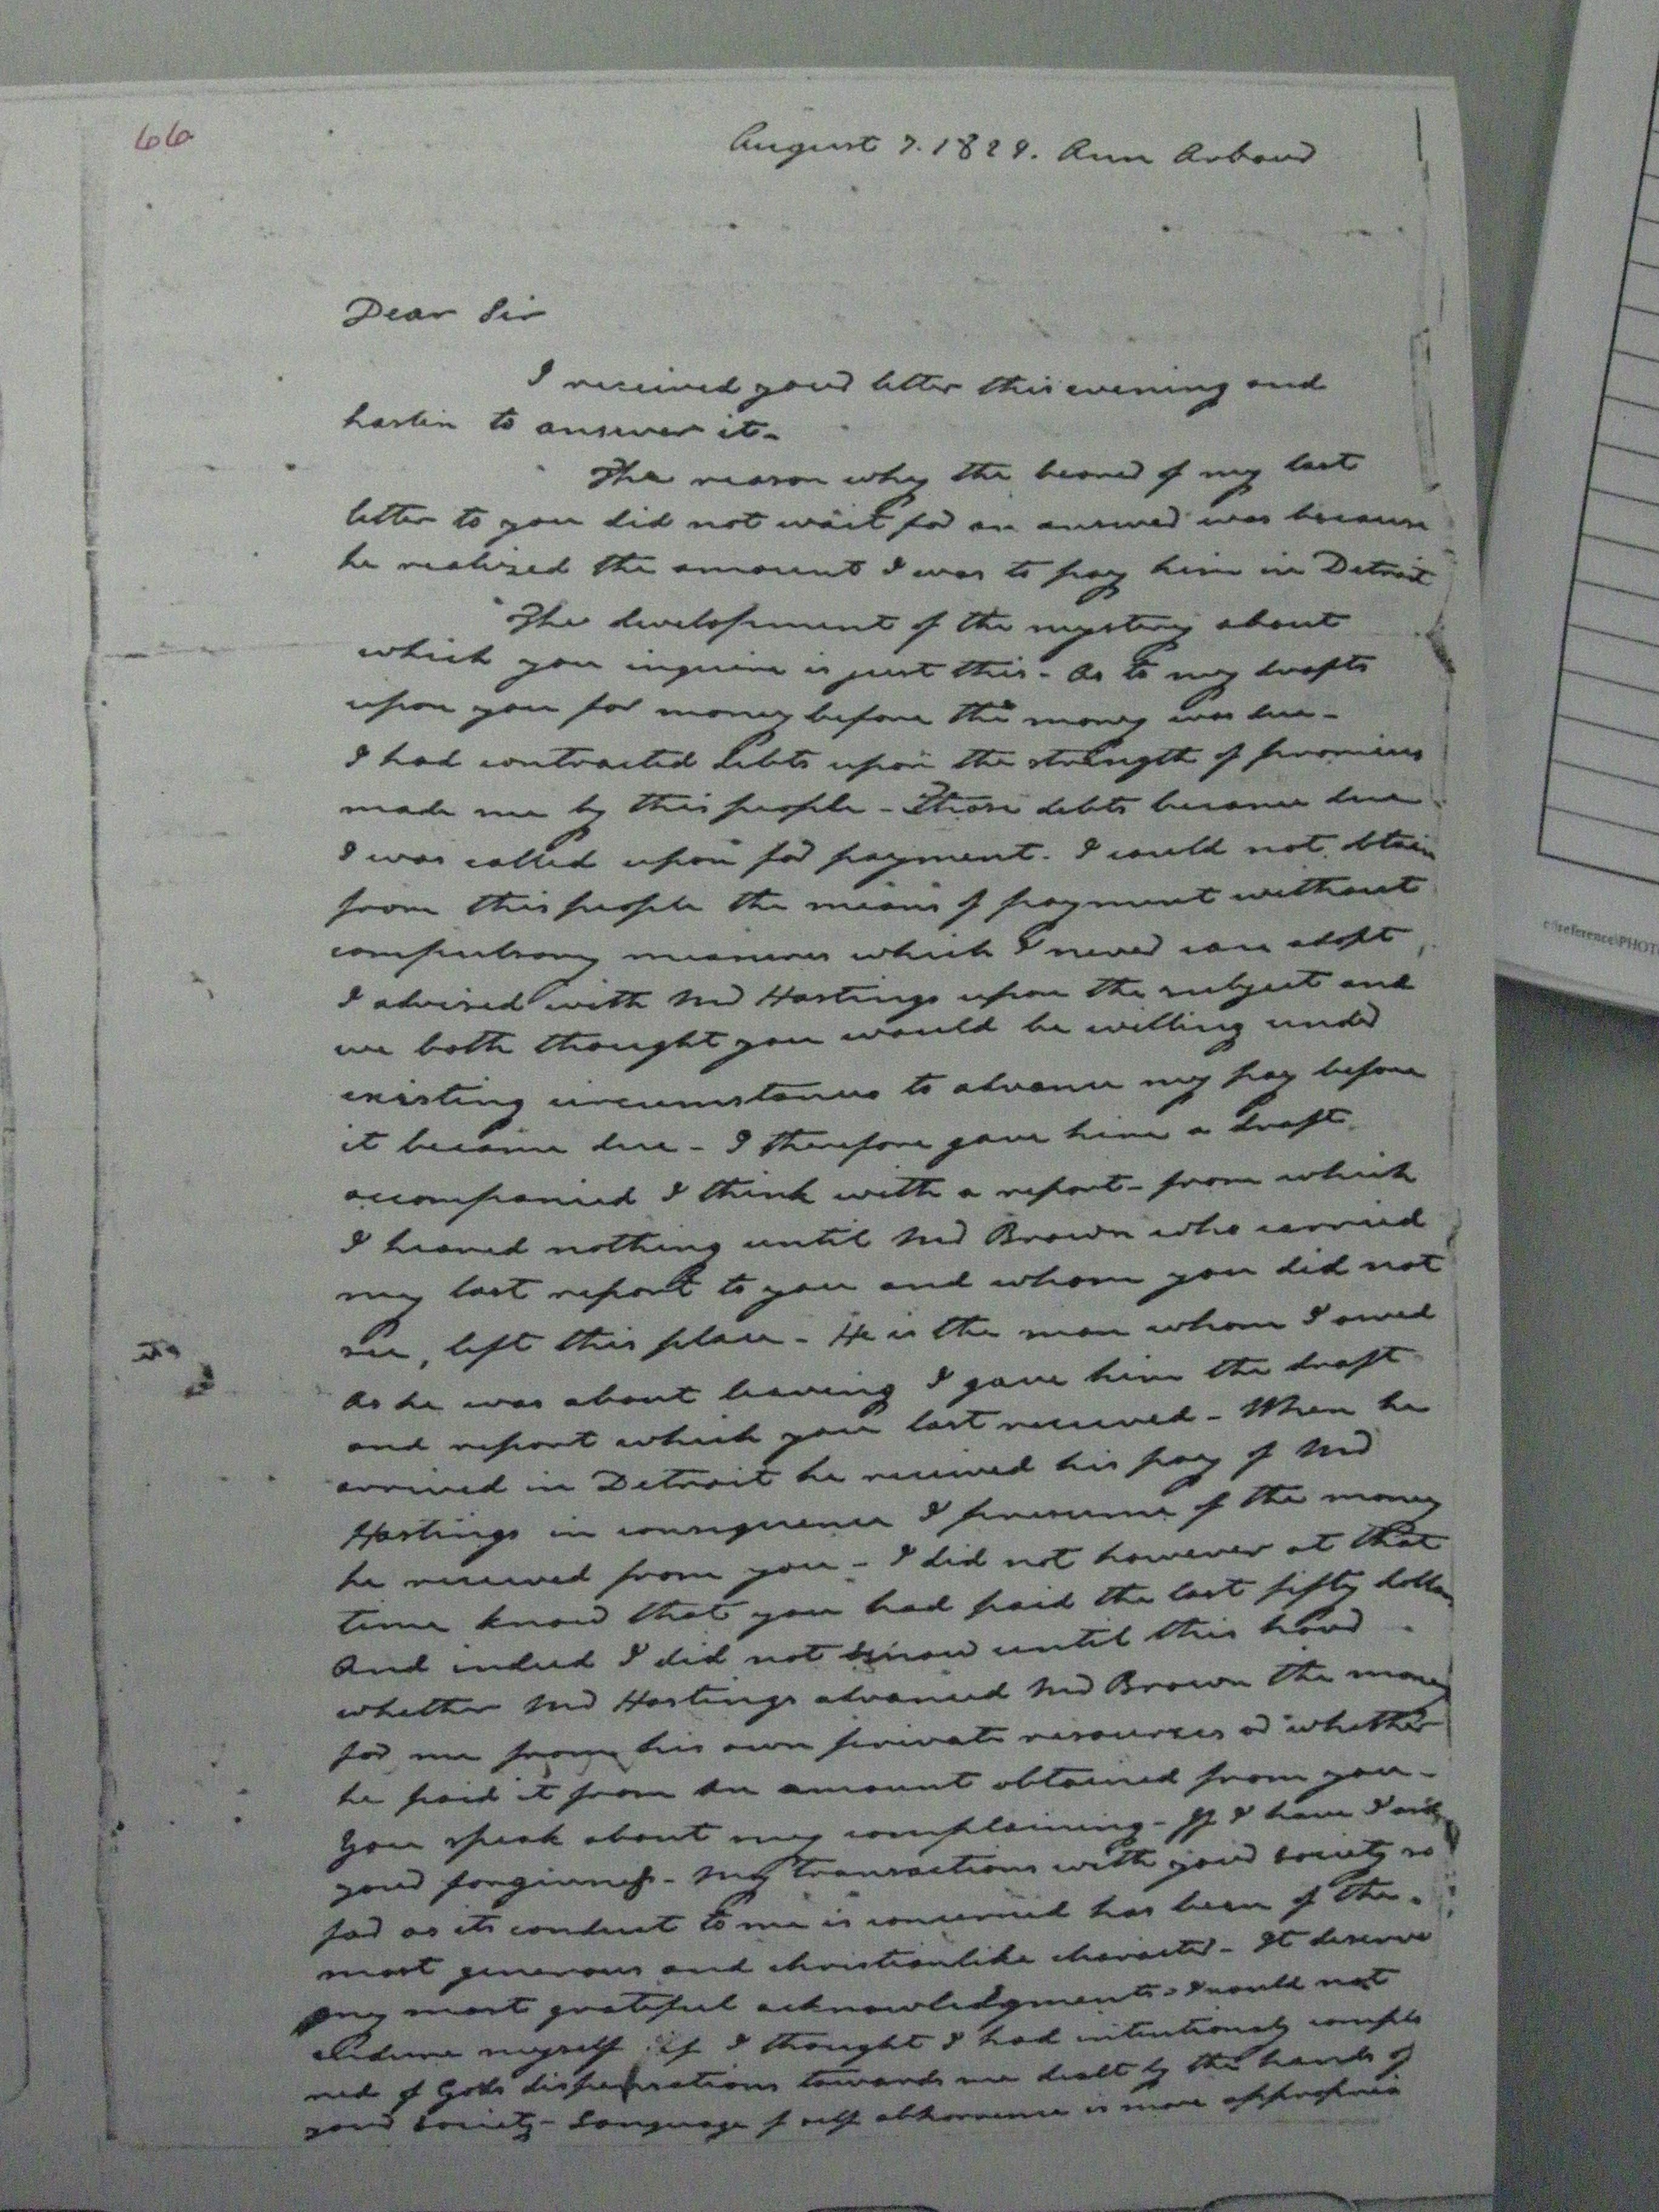 66
August 7. 1829. Ann Arbour
Dear Sir
I received your letter this evening and
hasten to answer it-
The reason why the bearer of my last
letter to you did not wait for an answer was because
he realized the amount I was to pay him in Detroit
The development of the mystery about
which you inquire is just this- As to my drafts
upon you for money before the money was due-
I had contracted debts upon the strength of promises
made me by this people- Those debts became due
I was called upon for payment. I could not obtain
from this people the means of payment without
compulsory measures which I never can adopt,
I advised with Mr Hastings upon the subject and
we both thought you would be willing under
existing circumstances to advance my pay before
it became due- I therefore gave him a draft
accompanied I think with a report- from which
I heared nothing until Mr Brown who carried
my last report to you and whom you did not
see, left this place- He is the man whom I owed
As he was about leaving I gave him the draft
and report which you last received- When he
arrived in Detroit he received his pay of Mr
Hastings in consequence I presume of the money
he received from you- I did not however at that
time know that you had paid the last fifty dollars
And indeed I did not know until this hour
whether Mr Hastings advanced Mr Brown the money
for me from his own private resources or whether
he paid it from an amount obtained from you-
You speak about my complaining- If I have I ask
your forgiveness- My transactions with your society so
far as its conduct to me is concerned has been of the
most generous and christianlike character- It deserves
my most grateful acknowledgments- I could not
endure myself if I thought I had intentionally complai
ned of Gods dispensations towards me dealt by the hands of
your Society- Language of self abhorrence is more appropria
c:\reference\PHOT